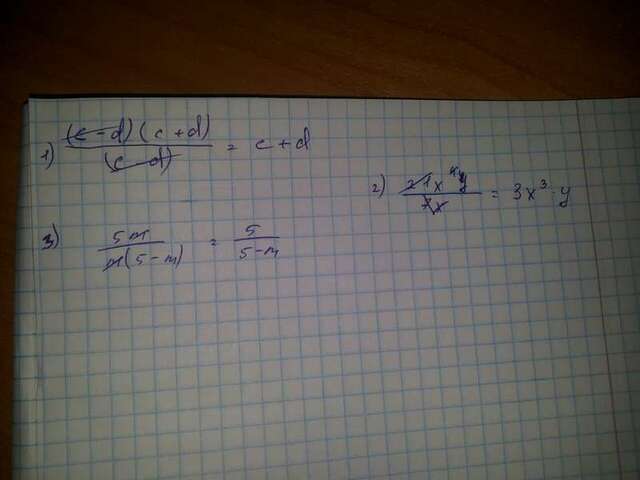 1) (c - d)(c + d) / (c - d) = c + d
2) 21x⁴y / 7x = 3x³·y
3) 5m / m(5 - m) = 5 / 5 - m